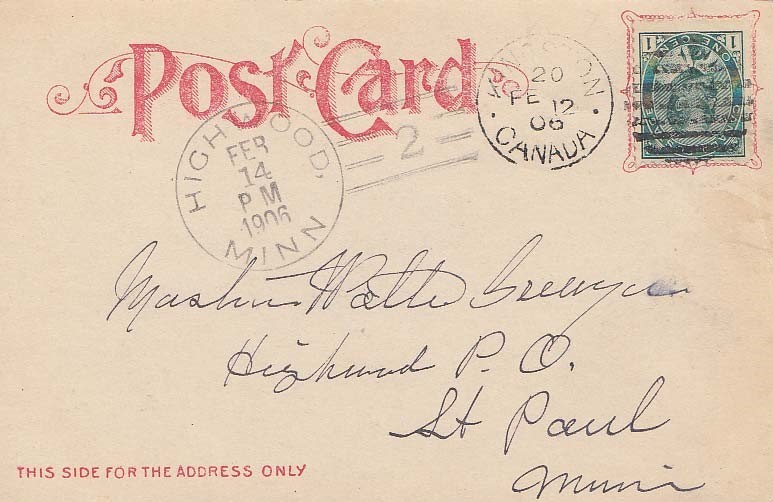 Post Card
KINGSTON
20
FE 12
06
CANADA
1 ONE CENT 1
HIGHWOOD,
FEB
14
PM
1906
MINN
2
Master Walter
Highwood P. O.
St Paul
Minn
THIS SIDE FOR THE ADDRESS ONLY